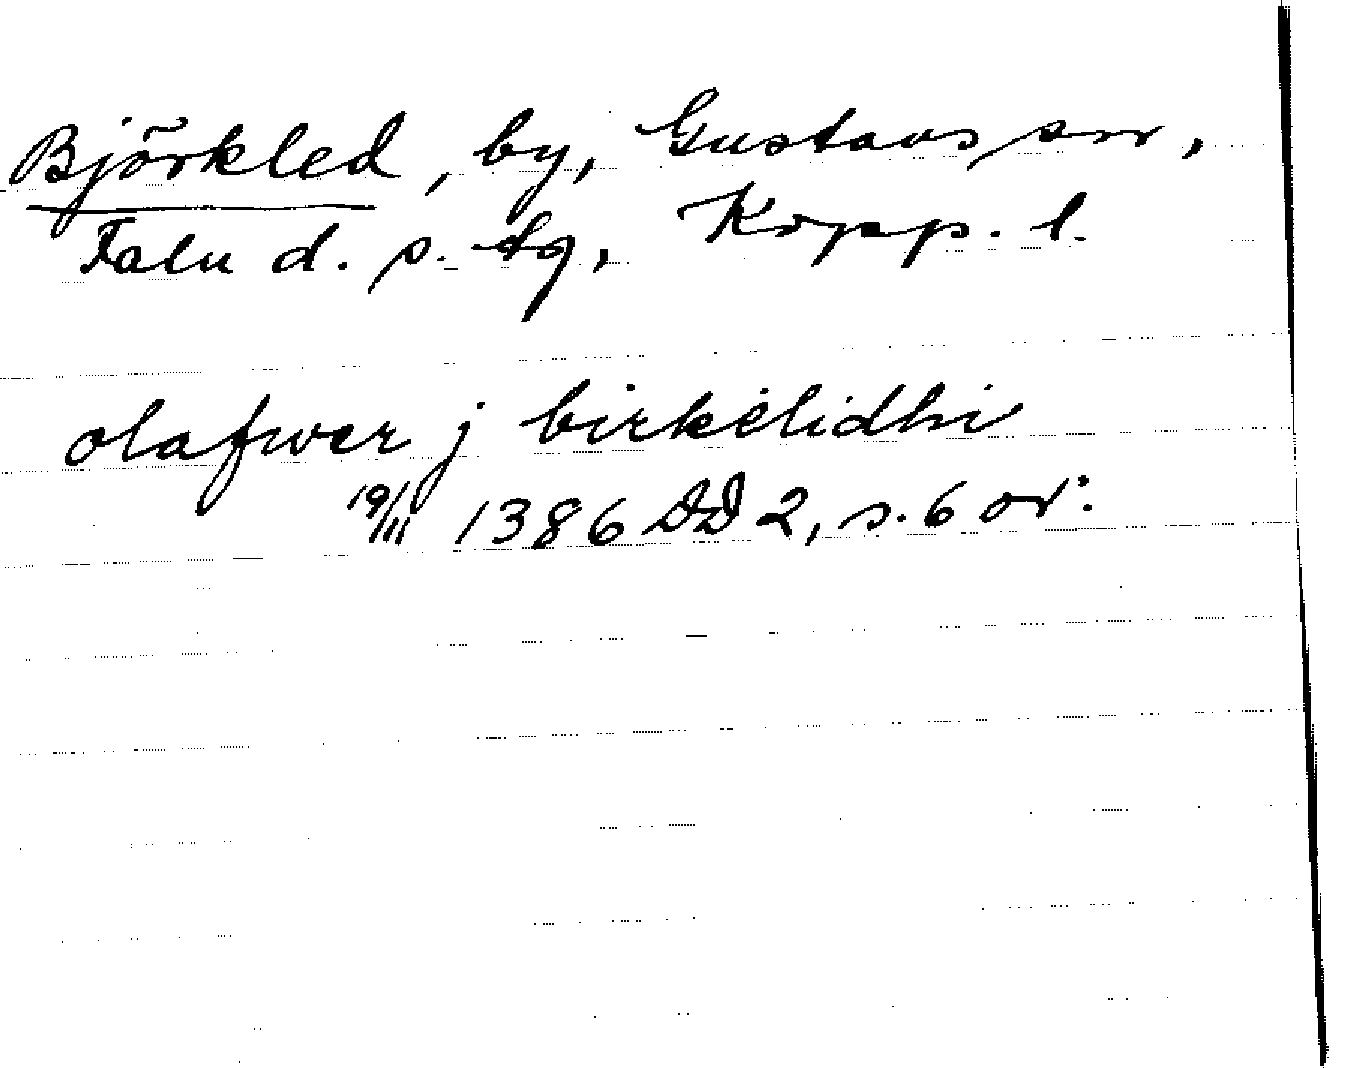 Björkled, by, Gustavs sn,
Falu d. s. tg, Kopp. l.
olafwer j birkelidhi
19/III 1386 DD 2, s. 6 or.